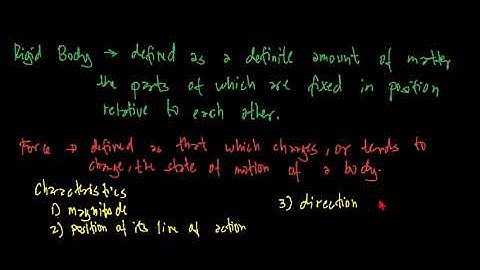 Rigid Body → defined as a definite amount of matter
the parts of which are fixed in position
relative to each other.
Force → defined as that which changes, or tends to
change, the state of motion of a body.
Characteristics
1) magnitude
2) position of its line of action
3) direction